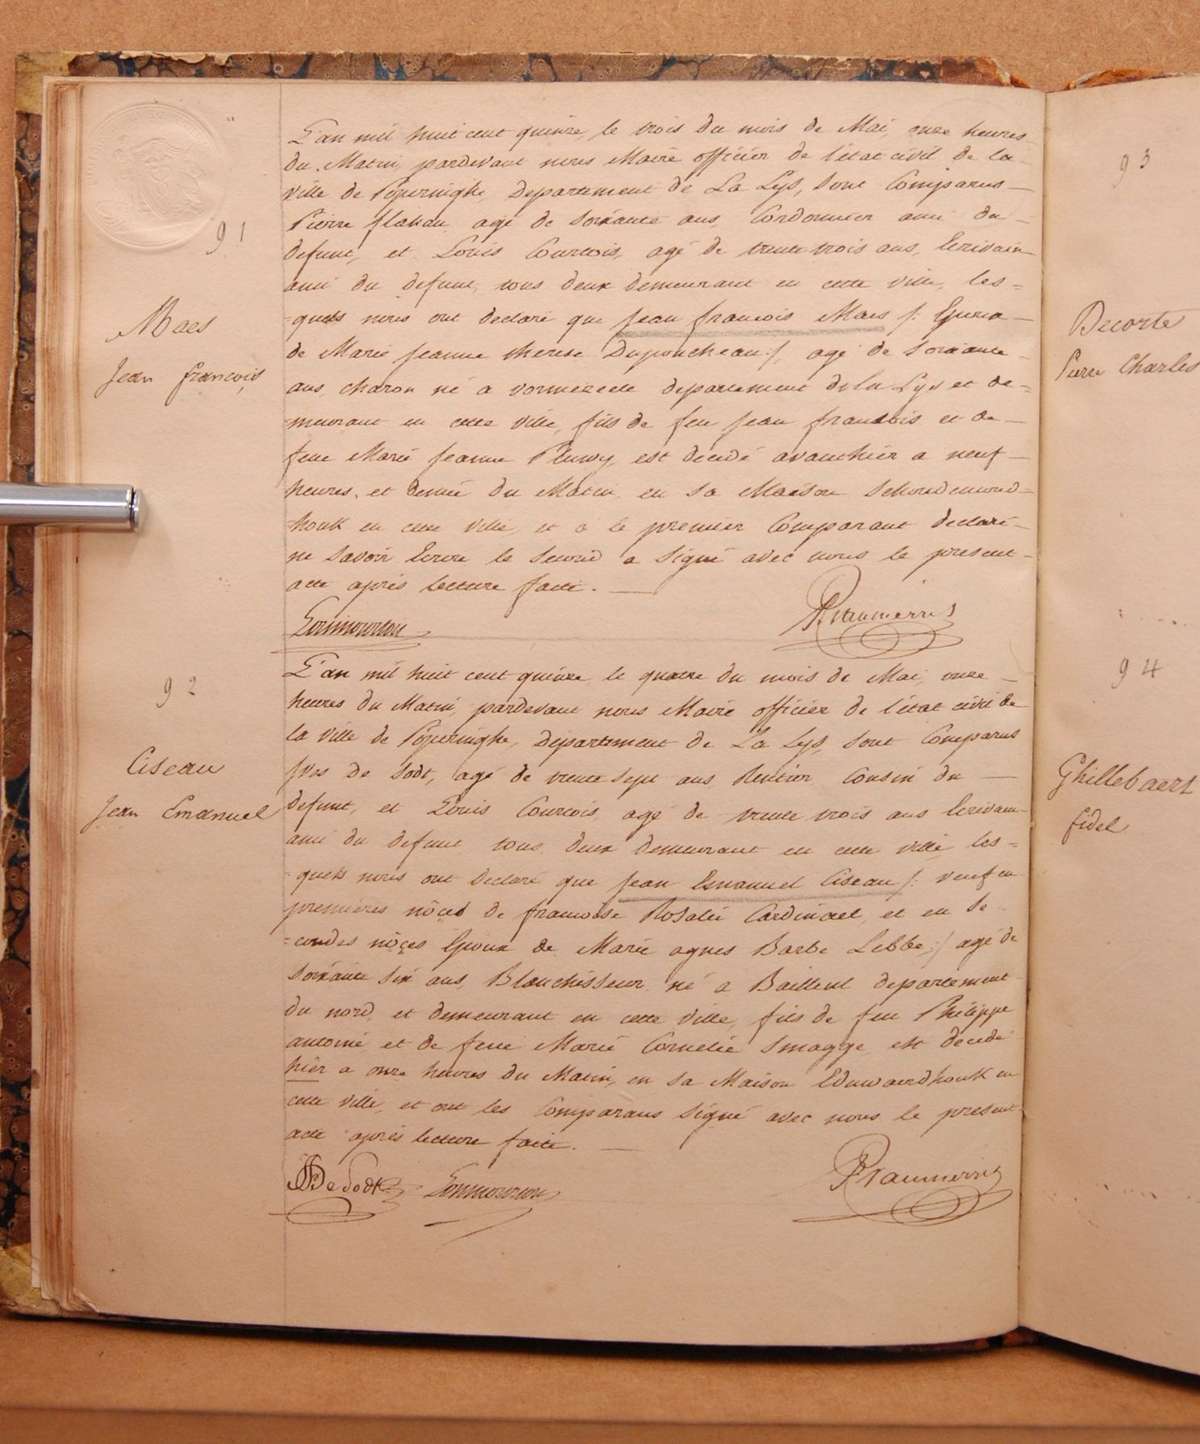 91
Maes
Jean francois
L'an mil huit cent quinze, le trois du mois de Mai, onze heures
du Matin, pardevant nous Maire officier de l'état civil de la
ville de Poperinghe, Departement de La Lys, sont Comparus
Pierre flahau agé de soixante ans, Cordonnier ami du
defunt, et Louis Courtois, agé de trente trois ans, Ecrivain
ami du defunt, tous deux demeurant en cette ville, les=
=quels nous ont declaré que Jean francois Maes /: Epoux
de Marie Jeanne therese :/, agé de soixante
ans, charon né a vormezeele departement de la Lys et de=
=meurant en cette ville, fils de feu Jean francois et de
feue Marie Jeanne est décidé avanthier a neuf
heures et demie du Matin, en sa Maison
=houk en cette ville, et a le premier Comparant declaré
ne savoir Ecrire le second a signé avec nous le present
acte après lecture faite.
92
Ciseau
Jean Emanuel
L'an mil huit cent quinze, le quatre du mois de Mai, onze
heures du Matin, pardevant nous Maire officier de l'état civil de
la ville de Poperinghe, Departement de La Lys, sont Comparus
Yves De Sodt, agé de trente sept ans Rentier, Cousin du
defunt, et Louis Courtois, agé de trente trois ans Ecrivain
ami du defunt tous deux demeurant en cette ville, les=
=quels nous ont declaré que Jean Emanuel Ciseau /: veuf en
premières nôces de francoise Rosalie Cardinael, et en se
=condes nôces Epoux de Marie agnes Barbe Lebbe :/ agé de
soixante six ans, Blanchisseur, né a Bailleul departement
du nord, et demeurant en cette ville, fils de feu Philippe
antoine et de feue Marie Cornelie Smagge est décidé
hier a onze heures du Matin, en sa Maison Eduwaerdhouk en
cette ville, et ont les Comparans signé avec nous le present
acte après lecture faite.
De Sodt
93
Decorte
Pierre Charles
94
Ghillebaert
fidel